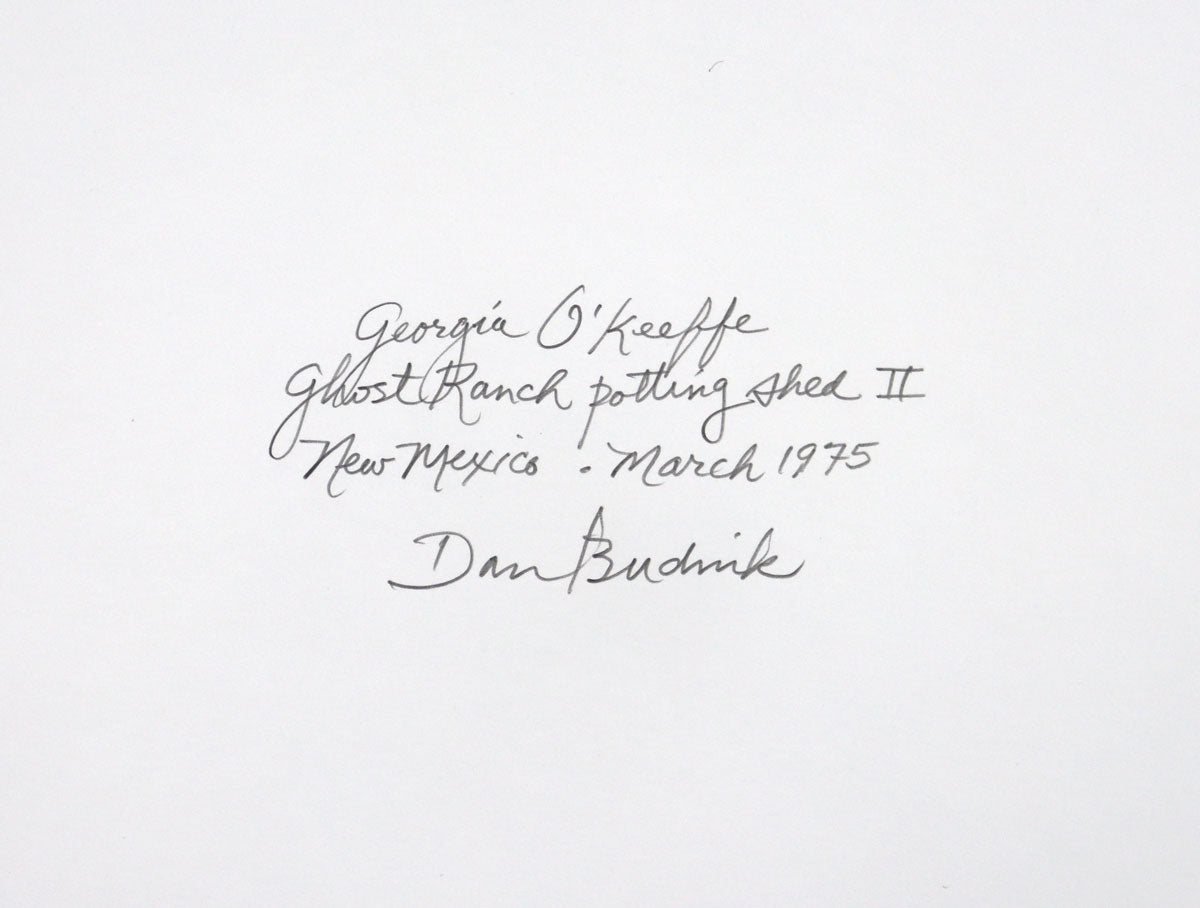 Georgia O'Keeffe
Ghost Ranch potting shed II
New Mexico . March 1975
Dan Budnik